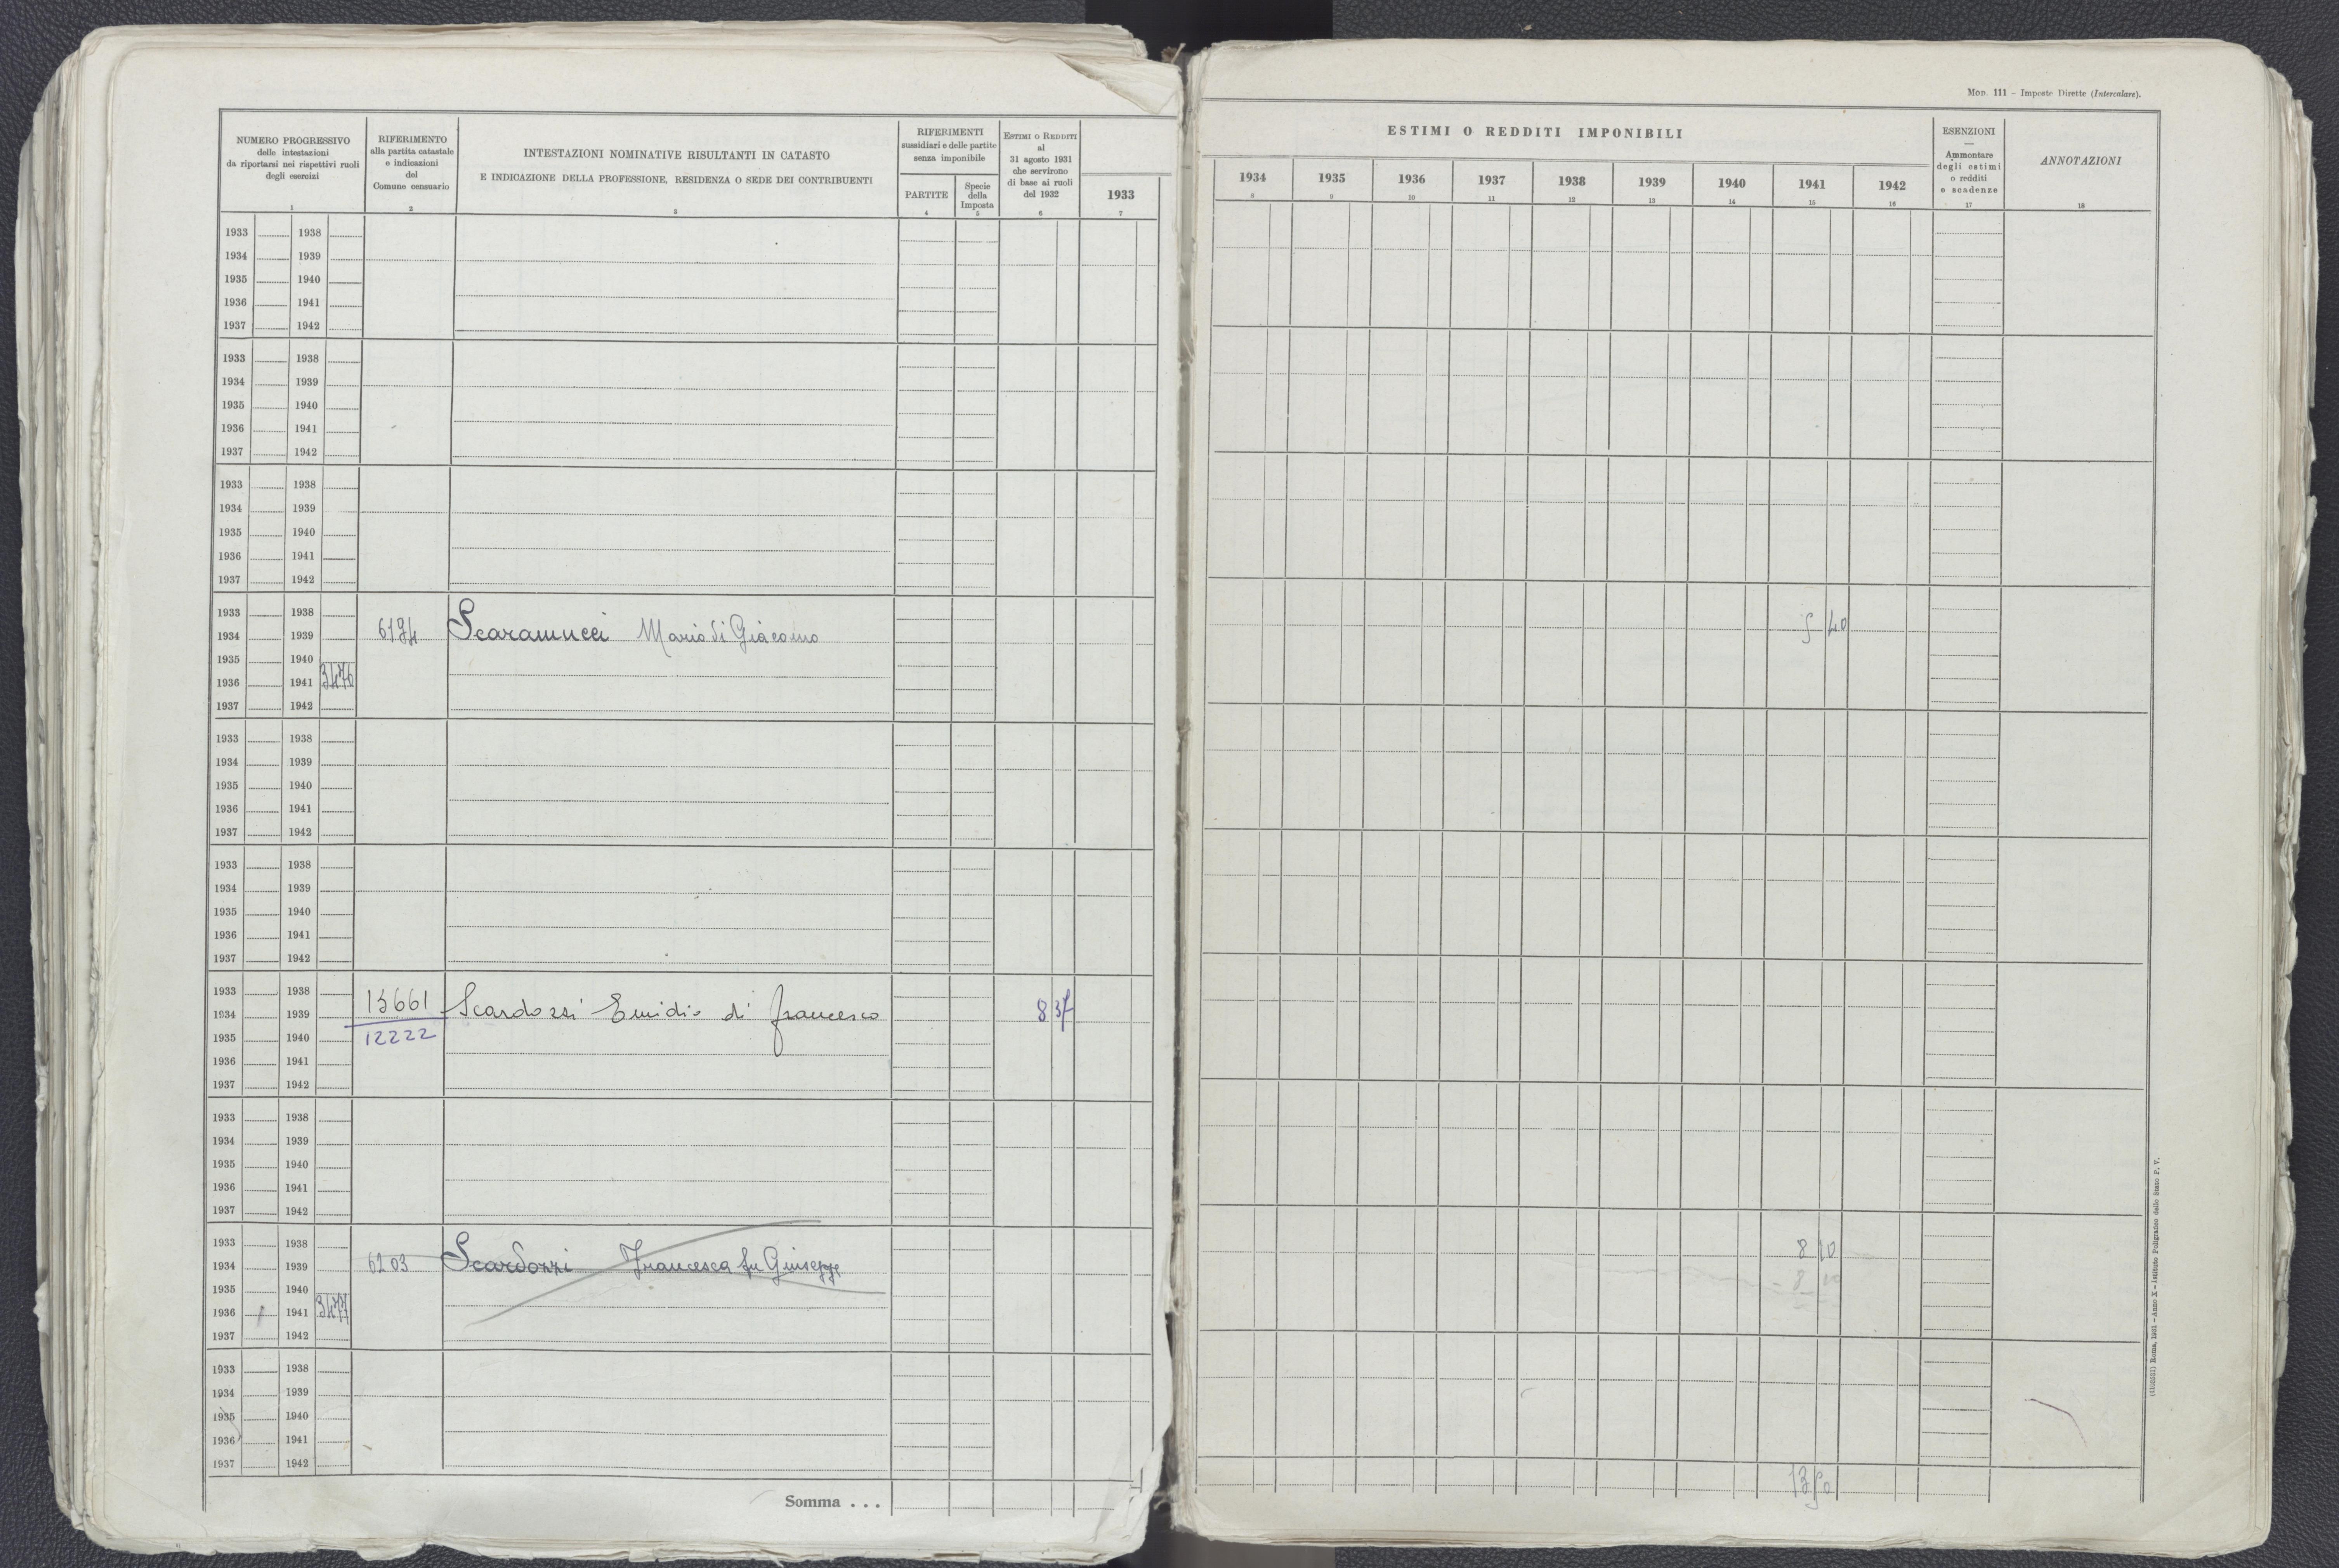 Mod. 111 – Imposte Dirette (Intercalare).
NUMERO PROGRESSIVO
delle intestazioni
da riportarsi nei rispettivi ruoli
degli esercizi
1
RIFERIMENTO
alla partita catastale
e indicazioni
del
Comune censuario
2
INTESTAZIONI NOMINATIVE RISULTANTI IN CATASTO
E INDICAZIONE DELLA PROFESSIONE, RESIDENZA O SEDE DEI CONTRIBUENTI
3
RIFERIMENTI
sussidiari e delle partite
senza imponibile
PARTITE
4
Specie
della
Imposta
5
Estimi o Redditi
al
31 agosto 1931
che servirono
di base ai ruoli
del 1932
6
1933
7
ESTIMI O REDDITI IMPONIBILI
1934 1935 1936 1937 1938 1939 1940 1941 1942
8 9 10 11 12 13 14 15 16
ESENZIONI
—
Ammontare
degli estimi
o redditi
e scadenze
17
ANNOTAZIONI
18
1933 1938
1934 1939
1935 1940
1936 1941
1937 1942
1933 1938
1934 1939
1935 1940
1936 1941
1937 1942
1933 1938
1934 1939
1935 1940
1936 1941
1937 1942
1933 1938
1934 1939 6194 Scaramucci Mario di Giacomo 5 40
1935 1940
1936 1941 3476
1937 1942
1933 1938
1934 1939
1935 1940
1936 1941
1937 1942
1933 1938
1934 1939
1935 1940
1936 1941
1937 1942
1933 1938
1934 1939 13661 Scardozzi Emidio di Francesco 8 37
1935 1940 12222
1936 1941
1937 1942
1933 1938
1934 1939
1935 1940
1936 1941
1937 1942
1933 1938
1934 1939 6203 Scardozzi Francesca fu Giuseppe 8 10
1935 1940 8 10
1936 1941 3477
1937 1942
1933 1938
1934 1939
1935 1940
1936 1941
1937 1942
Somma . . . 13 50
(4150531) Roma, 1931 – Anno X – Istituto Poligrafico dello Stato P. V.